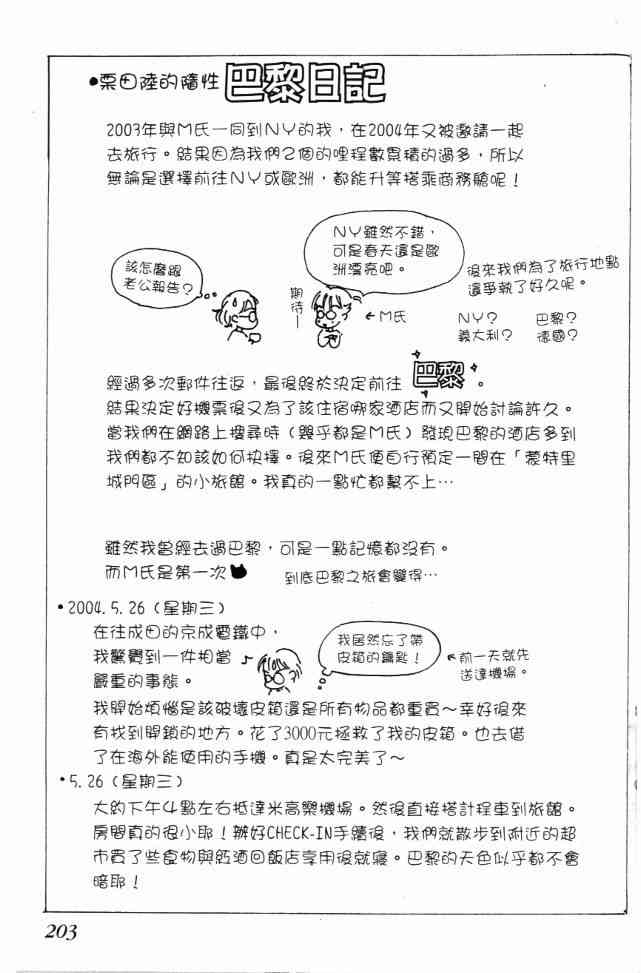 •栗田陸的隨性 巴黎日記
2003年與M氏一同到NY的我，在2004年又被邀請一起
去旅行。結果因為我們2個的哩程數累積的過多，所以
無論是選擇前往NY或歐洲，都能升等搭乘商務艙呢！
該怎麼跟
老公報告？
期待—
NY雖然不錯，
可是春天還是歐
洲漂亮吧。
←M氏
後來我們為了旅行地點
還爭執了好久呢。
NY？ 巴黎？
義大利？ 德國？
經過多次郵件往返，最後終於決定前往 巴黎。
結果決定好機票後又為了該住宿哪家酒店而又開始討論許久。
當我們在網路上搜尋時（幾乎都是M氏）發現巴黎的酒店多到
我們都不知該如何抉擇。後來M氏便自行預定一間在「蒙特里
城門區」的小旅館。我真的一點忙都幫不上…
雖然我曾經去過巴黎，可是一點記憶都沒有。
而M氏是第一次 到底巴黎之旅會變得…
•2004.5.26（星期三）
在往成田的京成電鐵中，
我驚覺到一件相當
嚴重的事態。
我居然忘了帶
皮箱的鑰匙！
←前一天就先
送達機場。
我開始煩惱是該破壞皮箱還是所有物品都重買～幸好後來
有找到開鎖的地方。花了3000元拯救了我的皮箱。也去借
了在海外能使用的手機。真是太完美了～
•5.26（星期三）
大約下午4點左右抵達米高樂機場。然後直接搭計程車到旅館。
房間真的很小耶！辦好CHECK-IN手續後，我們就散步到附近的超
市買了些食物與紅酒回飯店享用後就寢。巴黎的天色似乎都不會
暗耶！
203